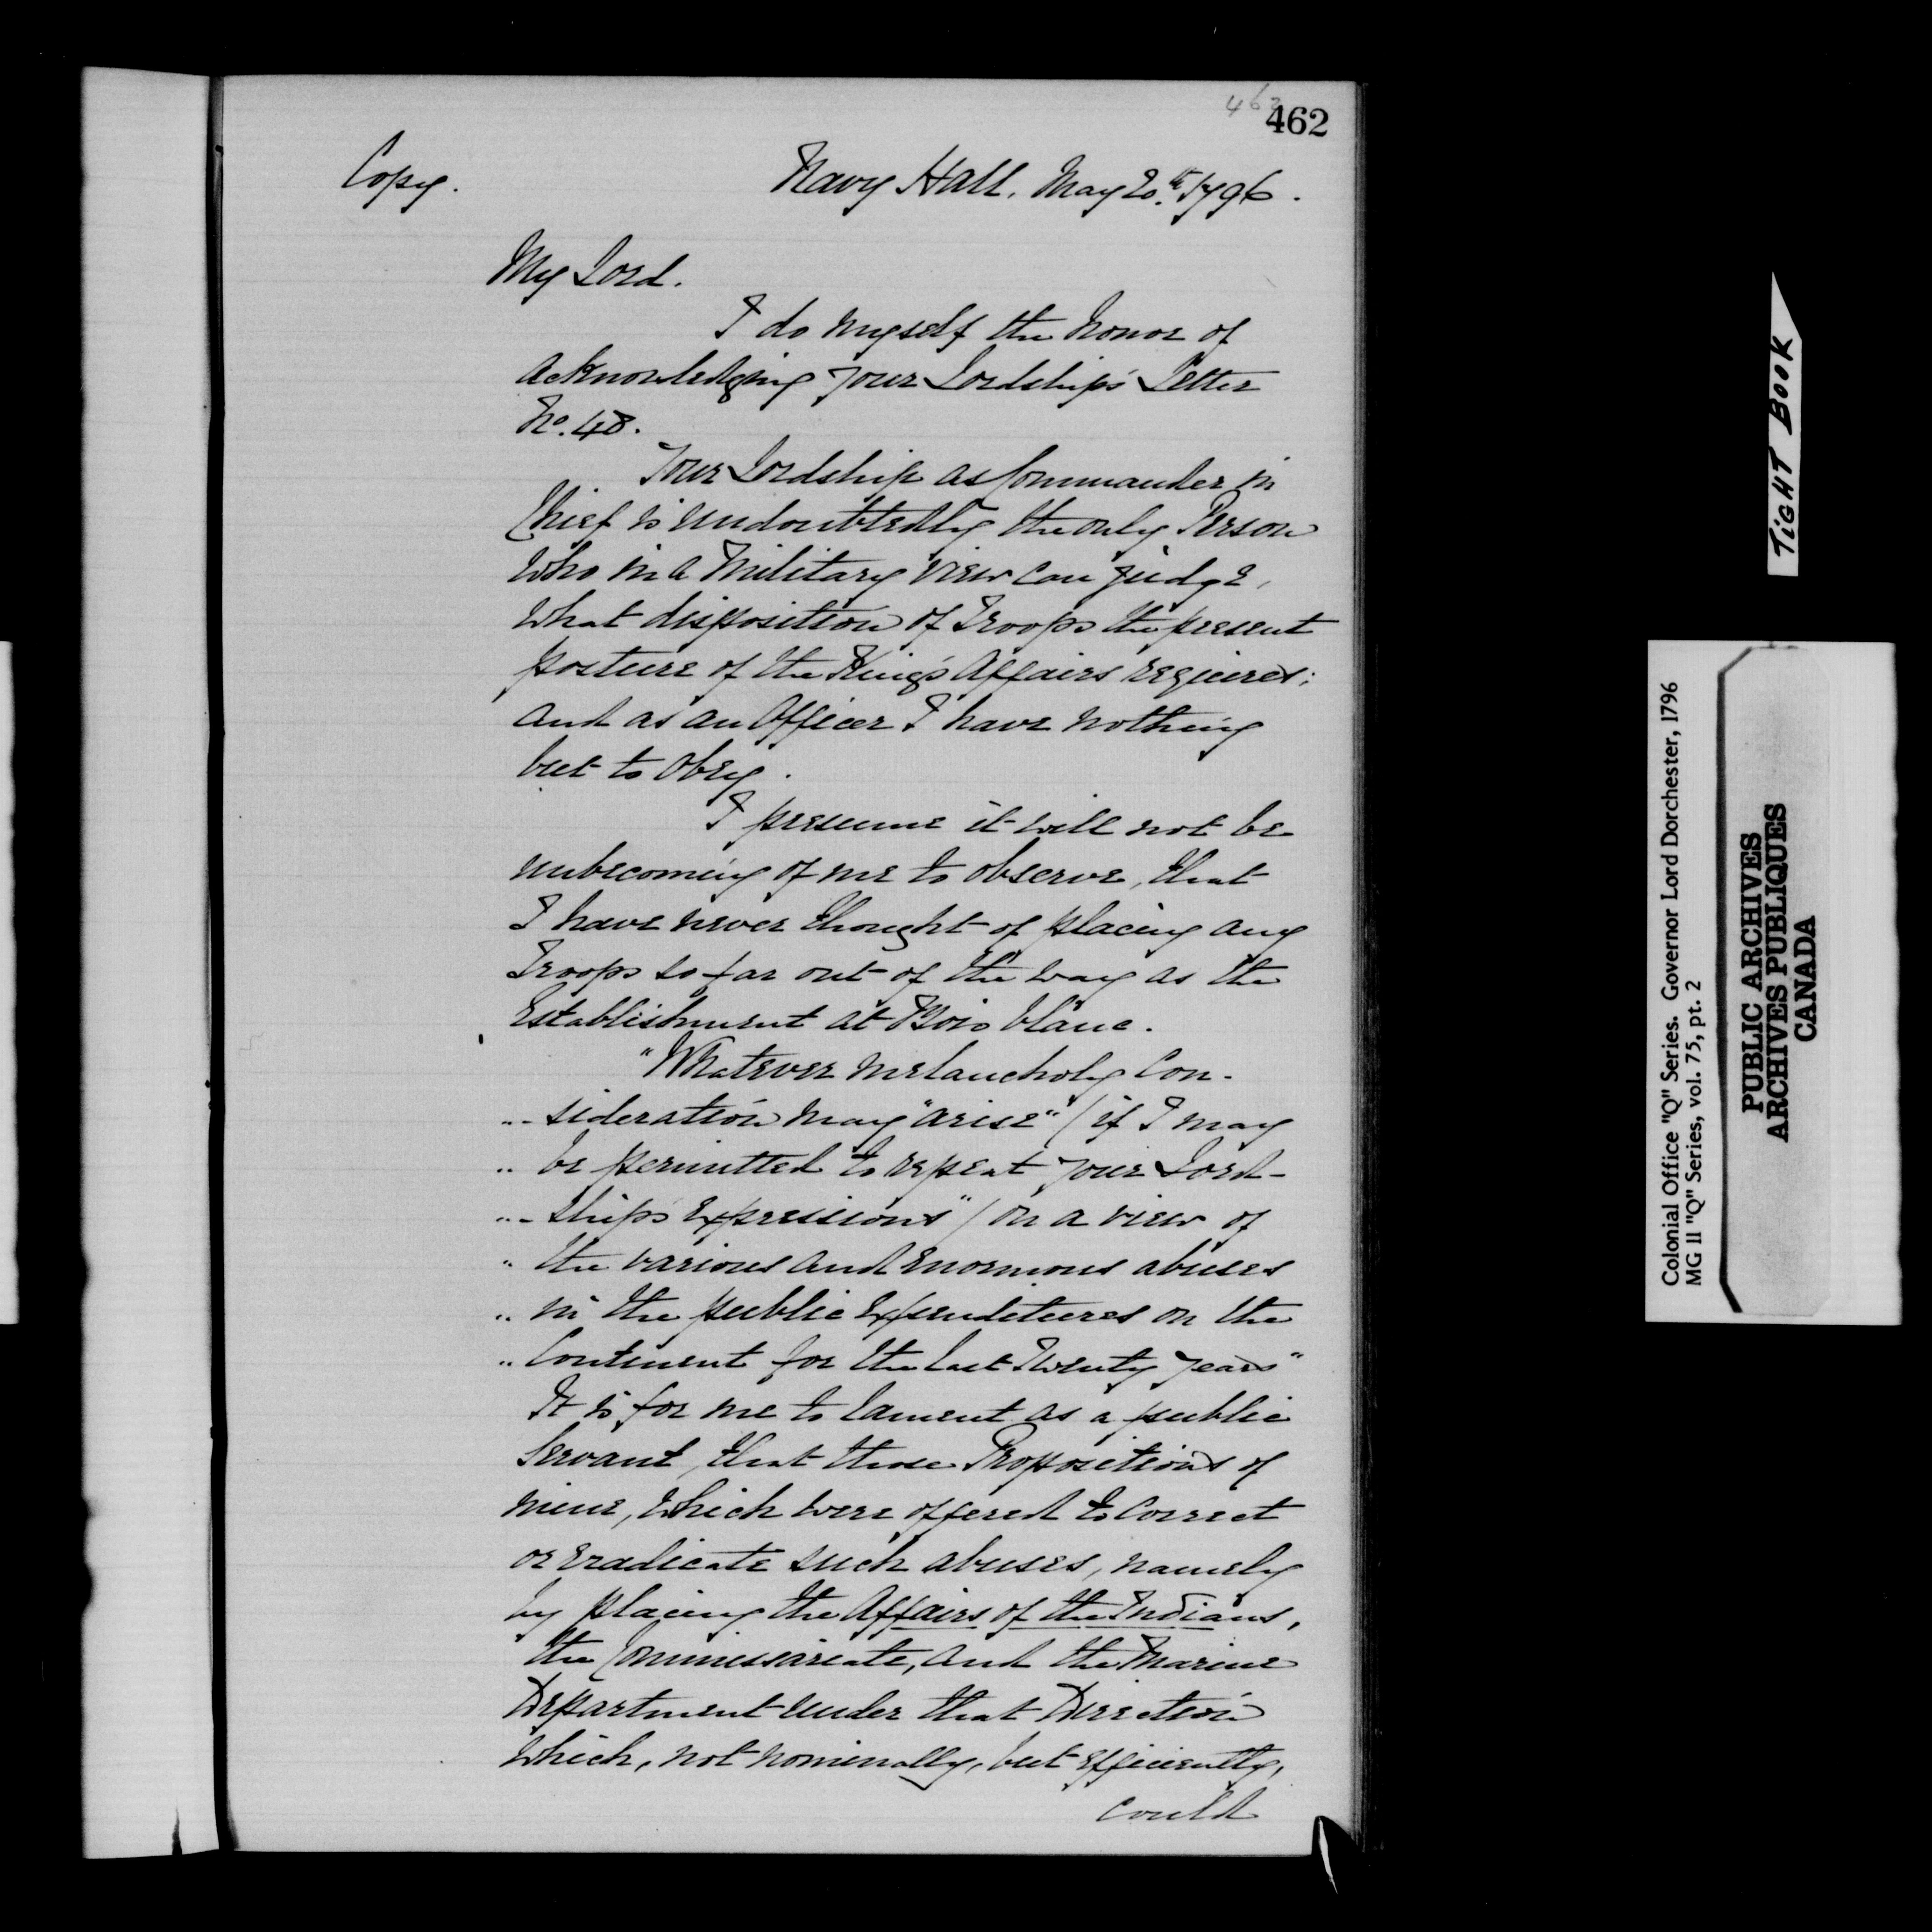 462
462
Copy.
Navy Hall, May 20th 1796.
My Lord.
I do myself the honor of
acknowledging your Lordship's Letter
No. 48.
Your Lordship as Commander in
Chief is undoubtedly the only Person
who in a Military view can judge,
what disposition of Troops the present
posture of the King's Affairs requires;
and as an Officer I have nothing
but to obey.
I presume it will not be
unbecoming of me to observe, that
I have never thought of placing any
Troops so far out of the way as the
Establishment at Bois blanc.
"Whatever melancholy Con-
"- sideration may "arise" (if I may
" be permitted to repeat your Lord-
"- ship's Expressions") on a view of
" the various and enormous abuses
" in the public Expenditures on the
" Continent for the last Twenty years"
It is for me to lament as a public
Servant, that those Propositions of
mine, which were offered to correct
or eradicate such abuses, namely
by placing the Affairs of the Indians,
the Commissariate, and the Marine
Department under that Direction
which, not nominally, but efficiently,
could
TIGHT BOOK
Colonial Office "Q" Series. Governor Lord Dorchester, 1796
MG 11 "Q" Series, vol. 75, pt. 2
PUBLIC ARCHIVES
ARCHIVES PUBLIQUES
CANADA